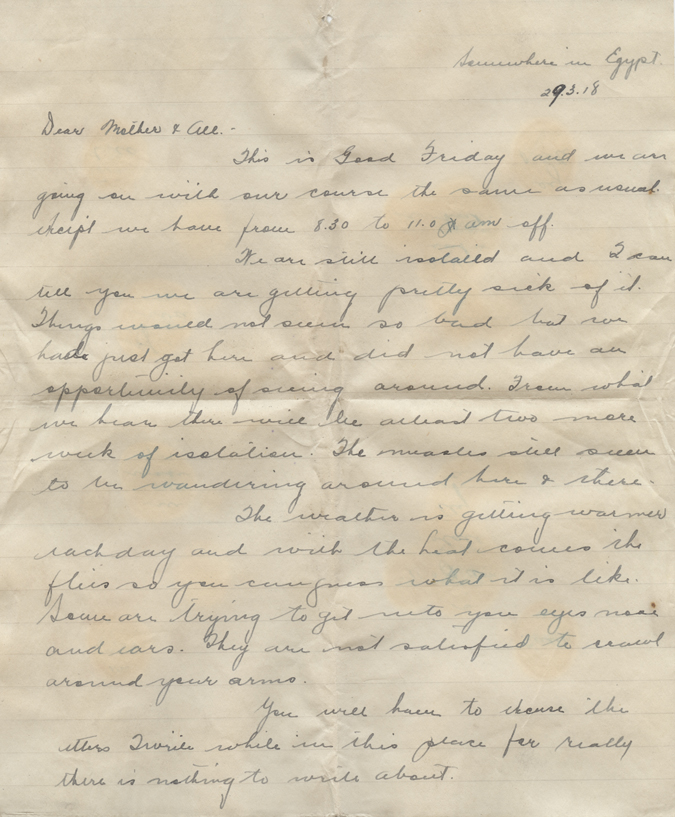 Somewhere in Egypt.
29.3.18
Dear Mother & All.-
This is Good Friday and we are
going on with our course the same as usual.
Except we have from 8.30 to 11.0 am off.
We are still isolated and I can
tell you we are getting pretty sick of it.
Things would not seem so bad but we
had just got here and did not have an
opportunity of seeing around. From what
we hear there will be atleast two more
week of isolation. The measles still seem
to be wandering around here & there.
The weather is getting warmer
each day and with the heat comes the
flies so you can guess what it is like.
Some are trying to get into you eyes nose
and ears. They are not satisfied to crawl
around your arms.
You will have to excuse the
letters I write while in this place for really
there is nothing to write about.